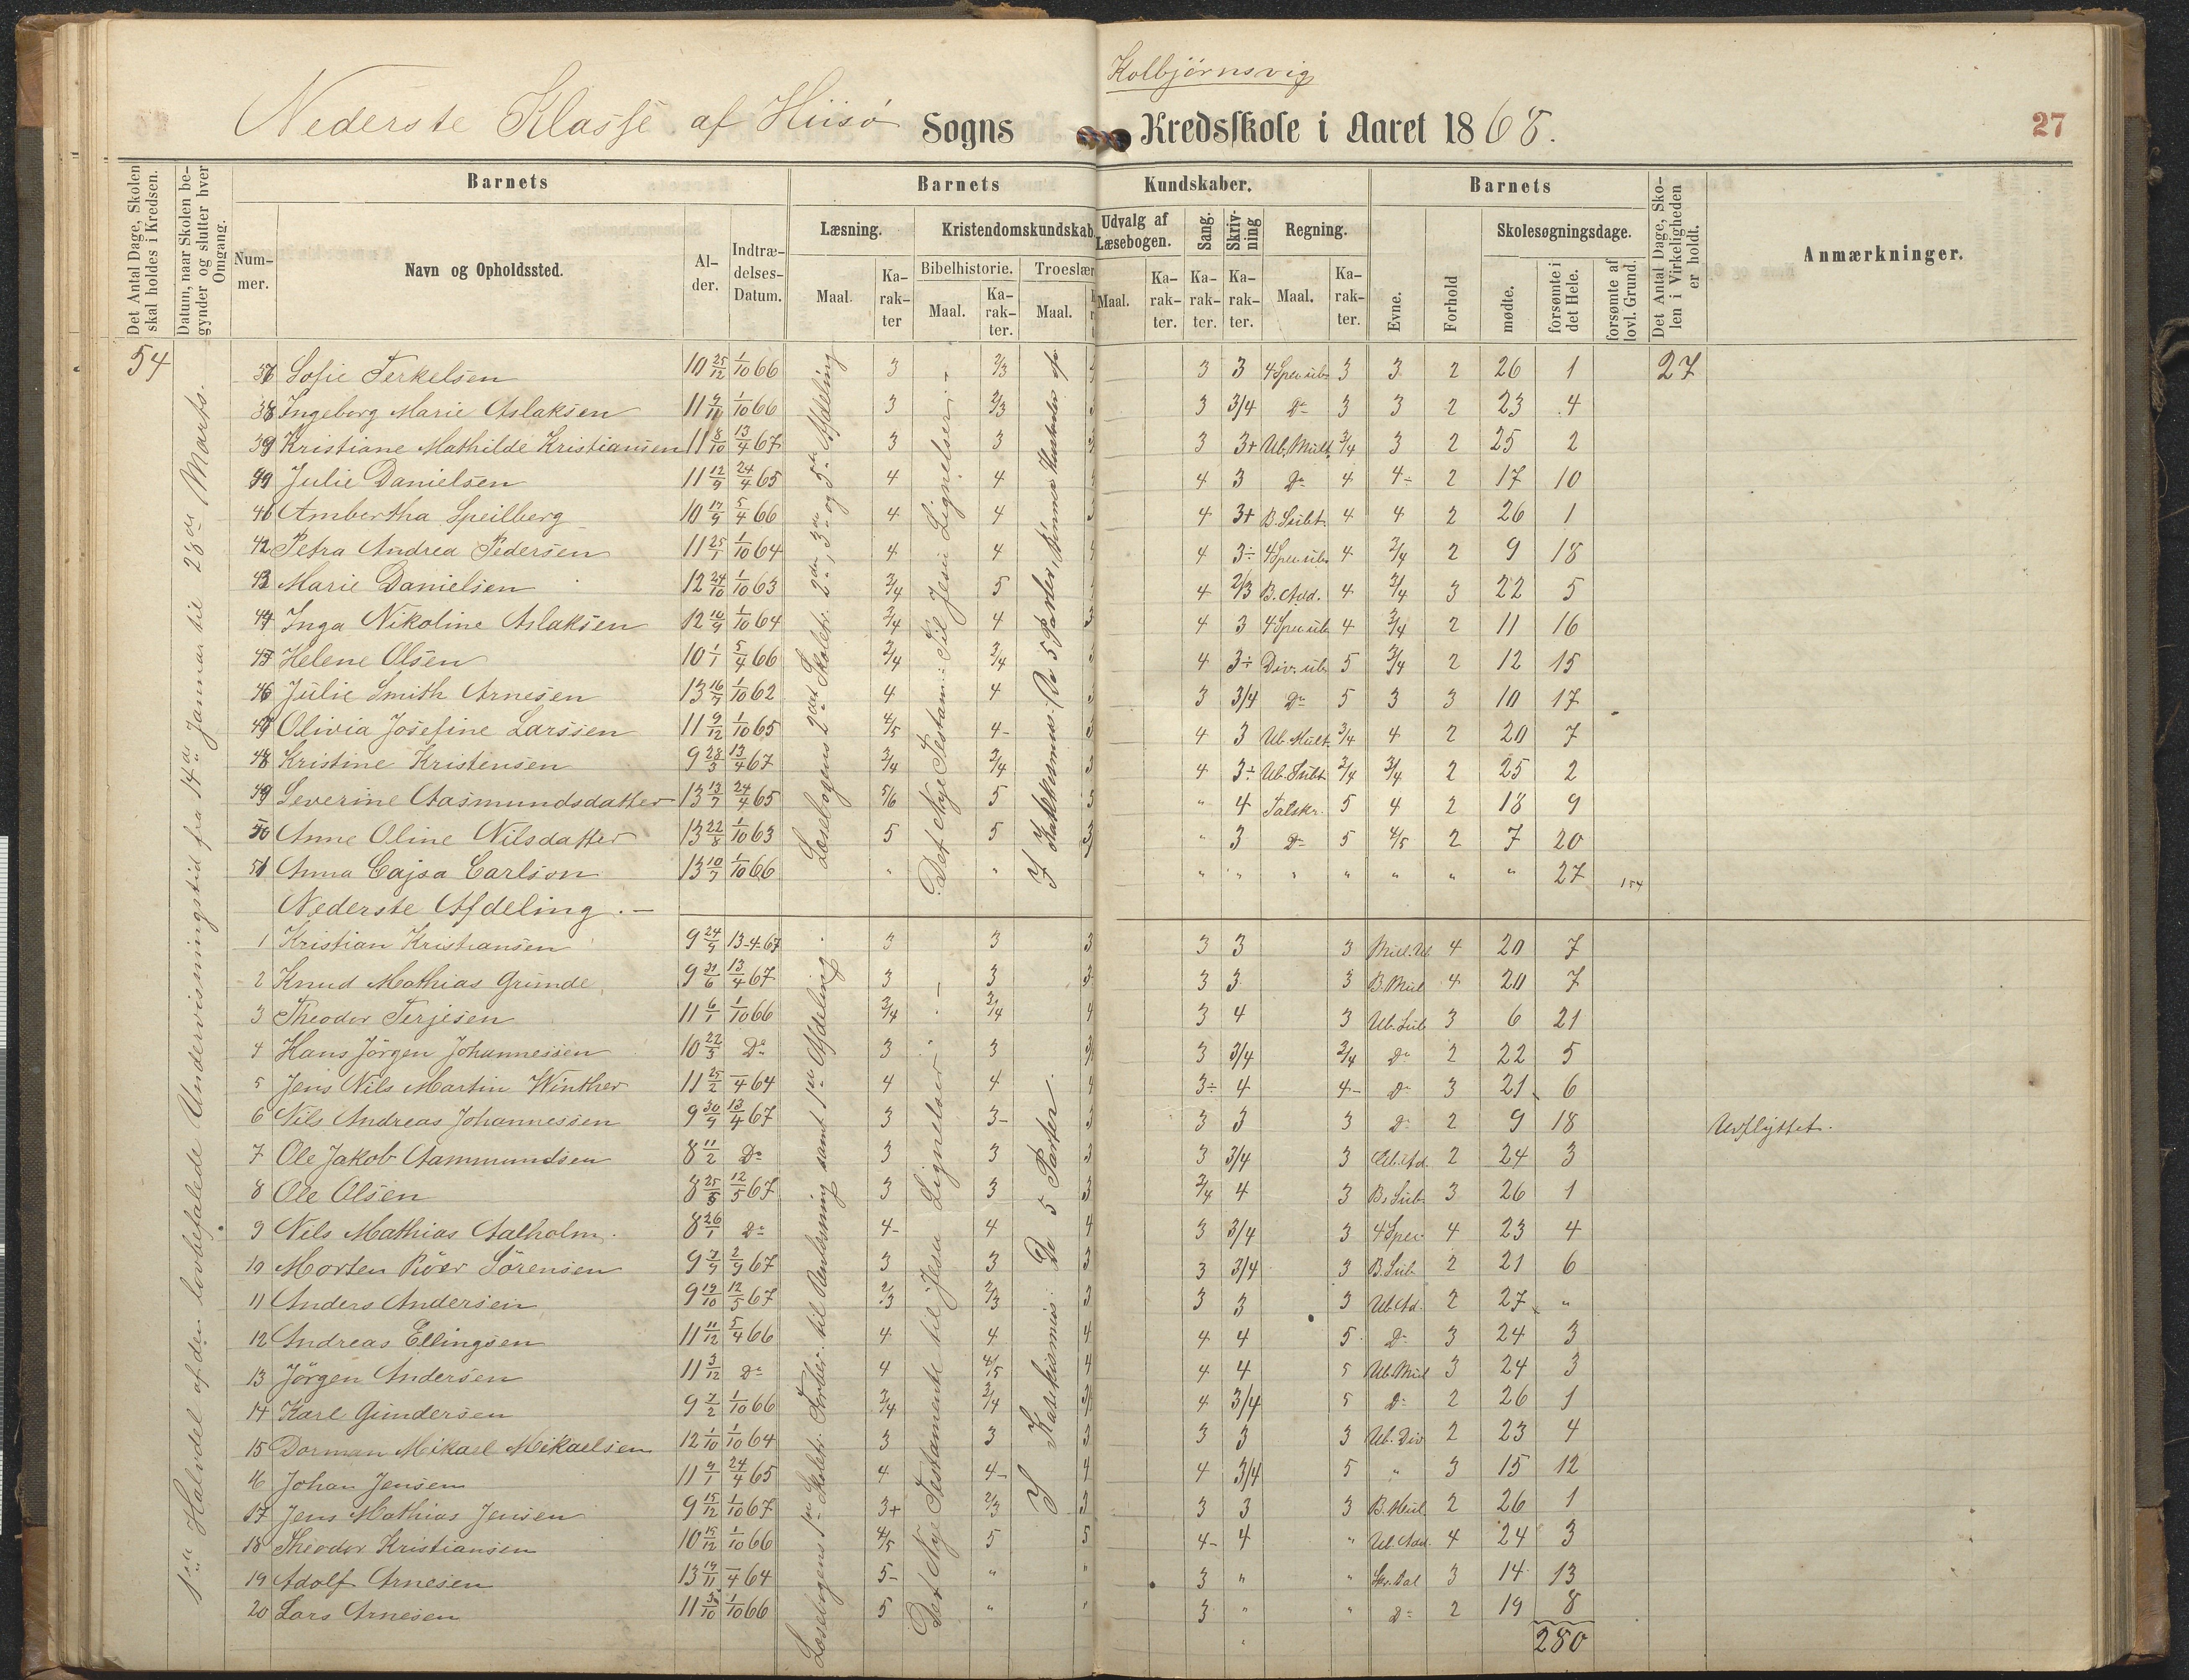 Kolbjørnsvig
Nederste Klasse af Hiisø Sogns Kredsskole i Aaret 1868.
27
Det Antal Dage, Skolen skal holdes i Kredsen.
Datum, naar Skolen begynder og slutter hver Omgang.
Barnets
Barnets Kundskaber.
Barnets
Det Antal Dage, Skolen i Virkeligheden er holdt.
Anmærkninger.
Nummer.
Navn og Opholdssted.
Alder.
Indtrædelses-Datum.
Læsning.
Kristendomskundskab.
Udvalg af Læsebogen.
Sang.
Skrivning
Regning.
Evne.
Forhold
Skolesøgningsdage.
Bibelhistorie.
Troeslær
Maal. Karakter
Maal. Karakter.
Maal.
Maal. Karakter.
Karakter.
Karakter.
Maal. Karakter.
mødte.
forsømte i det Hele.
forsømte af lovl. Grund.
54
1ste Halvdel af den lovbefalede Undervisningstid fra 14de Januar til 28de Marts.
Læsebogens 2det Skoletr. 2den, 3die og 5te Afdeling
Det Nye Testam: til Jesu Lignelser
37 Sofie Terkelsen 10 25/12 1/10 66 3 2/3 3 3 4 Spec. ub. 3 3 2 26 1 27
38 Ingeborg Marie Aslaksen 11 1/10 66 3 2/3 3 3/4 Do 3 3 2 23 4
39 Kristiane Mathilde Kristiansen 11 8/10 13/4 67 3 3 3 3+ Ub. Mult. 3/4 3 2 25 2
40 Julie Danielsen 11 12/9 24/4 65 4 4 4 3 Do 4 4- 2 17 10
41 Ambertha Speilberg 10 17/9 5/4 66 4 4 4 3+ B. Subt. 4 4 2 26 1
42 Petra Andrea Pedersen 11 25/1 1/10 64 4 4 4 3÷ 4 Spec. ub. 4 3/4 2 9 18
43 Marie Danielsen 12 24/10 1/10 63 3/4 5 4 2/3 B. Add. 4 3/4 3 22 5
44 Inga Nikoline Aslaksen 12 10/9 1/10 64 3/4 4 4 3 4 Spec. ub. 4 3/4 2 11 16
45 Helene Olsen 10 1/1 5/4 66 3/4 3/4 4 3÷ Div. ub. 5 3/4 2 12 15
46 Julie Smith Arnesen 13 16/7 1/10 62 4 4 3 3/4 Do 5 3 3 10 17
47 Olivia Josefine Larssen 11 9/12 1/10 65 4/5 4- 4 3 Ub. Mult. 3/4 4 2 20 7
48 Kristine Kristensen 9 28/3 13/4 67 3/4 3/4 4 3÷ Ub. Subt. 3/4 3/4 2 25 2
49 Severine Aasmundsdatter 13 13/7 24/4 65 5/6 5 " 4 Talskr. 5 4 2 18 9
50 Anne Oline Nilsdatter 13 22/8 1/10 63 5 5 " 3 Do 5 4/5 2 7 20
51 Anna Cajsa Carlson 13 10/7 1/10 66 " " " " " " " " " 27 154
Nederste Afdeling.—
Læsebogens 1ste Skoletr. Forber. til Renlæsning samt 1ste Afdeling.
Det Nye Testamente til Jesu Lignelser
I Katekismus: De 5 Parter
1 Kristian Kristiansen 9 24/9 13-4-67 3 3 3 3 3 3 Mul. Ub 4 20 7
2 Knud Mathias Grunde 9 21/6 13/4 67 3 3 3 3 3 3 B. Mul 4 20 7
3 Theodor Terjesen 11 6/1 1/10 66 3/4 3/4 4 3 4 3 Ub. Sub 3 6 21
4 Hans Jörgen Johannessen 10 22/3 Do 3 3 3 3/4 3/4 Do 2 22 5
5 Jens Nils Martin Winther 11 25/2 –/4 64 4 4 4 3÷ 4 4- Do 3 21 6
6 Nils Andreas Johannessen 9 30/9 13/4 67 3 3- 3 3 3 3 Do 2 9 18 Udflyttet.
7 Ole Jakob Aammundsen 8 11/2 Do 3 3 3 3 3/4 3 Ub. Ad. 2 24 3
8 Ole Olsen 8 25/5 12/5 67 3 3 3 3/4 4 3 B. Sub. 3 26 1
9 Nils Mathias Aalholm. 8 26/1 Do 4- 4 4 3 3/4 3 4 Spec 4 23 4
10 Morten Röer Sörensen 9 7/9 2/9 67 3 3 3 3 3/4 3 B. Sub 2 21 6
11 Anders Andersen 9 19/10 12/5 67 2/3 2/3 3 3 3 3 Ub. Ad. 2 27 "
12 Andreas Ellingsen 11 11/12 5/4 66 4 4 4 4 4 5 Do 3 24 3
13 Jörgen Andersen 11 3/12 Do 4 4/5 4 4 4 5 Ub. Mul 3 24 3
14 Karl Gundersen 9 7/2 1/10 66 3/4 3/4 4 3/4 5 Do 2 26 1
15 Dorman Mikael Mikaelsen 12 1/10 1/10 64 3 3 3 3 3 3 Ub. Div 2 23 4
16 Johan Jensen 11 9/1 24/4 65 4 4- 4 4 3/4 5 " 3 15 12
17 Jens Mathias Jensen 9 15/12 1/10 67 3+ 2/3 3 3 3 3 B. Mul 2 26 1
18 Theodor Kristiansen 10 15/12 1/10 66 4/5 5 5 4- 4 " Ub. Add. 4 24 3
19 Adolf Arnesen 13 19/11 –/4 64 5- " " 3 " " Skr. Tal 3 14 13
20 Lars Arnesen 11 3/10 1/10 66 5 " " 3 " " Do 2 19 8
280